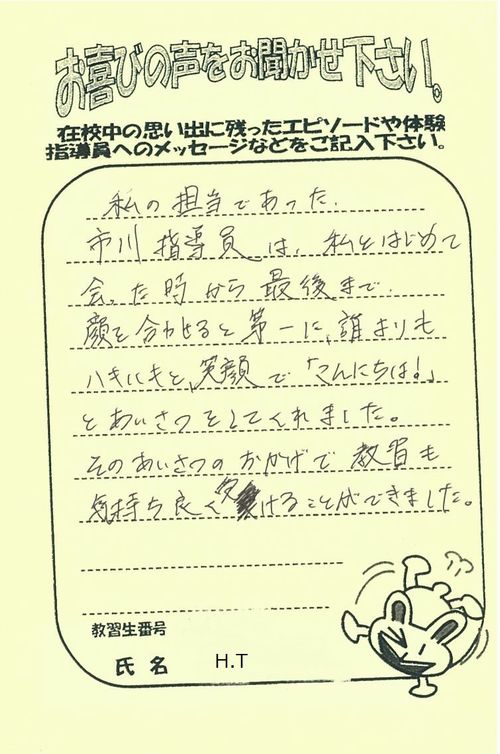 お喜びの声をお聞かせ下さい。
在校中の思い出に残ったエピソードや体験
指導員へのメッセージなどをご記入下さい。
私の担当であった、
市川指導員は、私とはじめて
会った時から最後まで、
顔を合わせると第一に、誰よりも
ハキハキと、笑顔で「こんにちは!」
とあいさつをしてくれました。
そのあいさつのおかげで教習も
気持ち良く受けることができました。
教習生番号
氏名 H.T